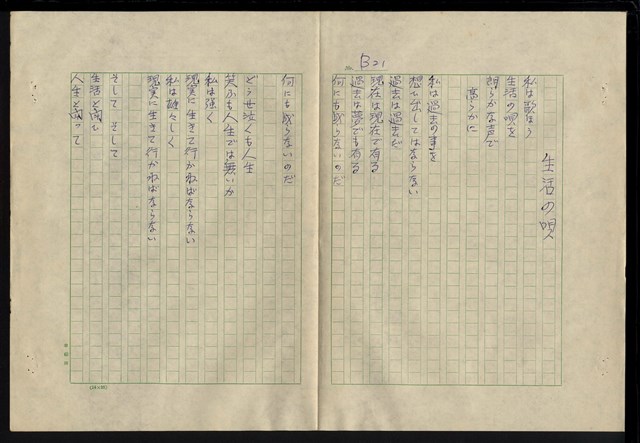 B21
生活の唄
私は歌はう
生活の唄を
朗らかな声で
高らかに
私は過去の事を
想ひ出してはならない
過去は過去だ
現在は現在で有る
過去は夢でも有る
何にも成らないのだ
何にも成らないのだ
どう世泣くも人生
笑ふも人生では無いか
私は強く
現実に生きて行かねばならない
私は雄々しく
現実に生きて行かねばならない
そして そして
生活と闘ひ
人生と闘って